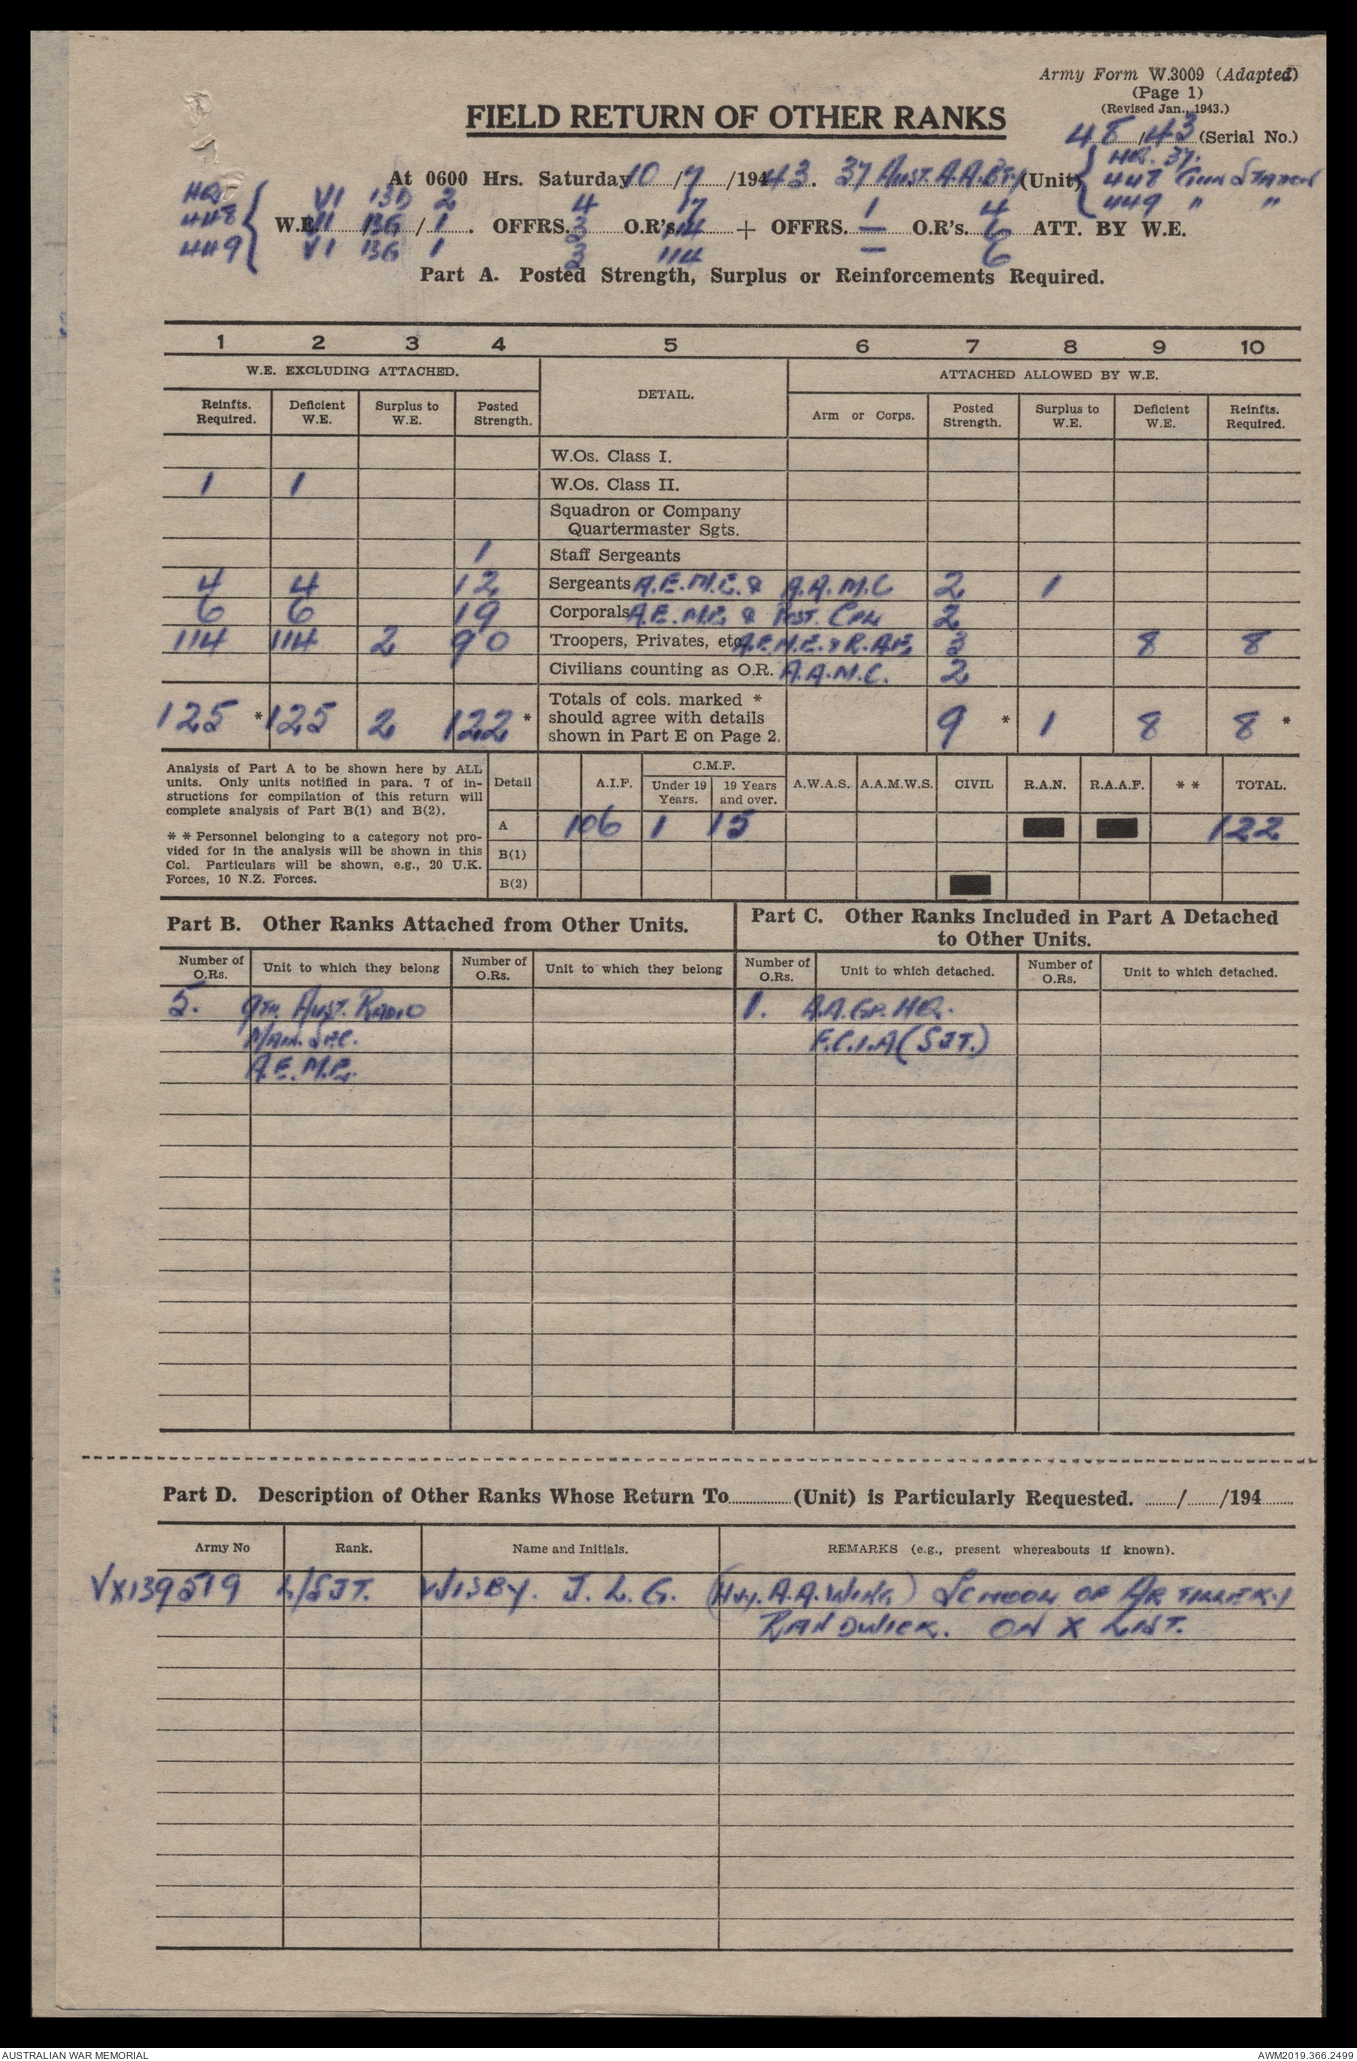 Army Form W.3009 (Adapted)
(Page 1)
(Revised Jan., 1943.)
FIELD RETURN OF OTHER RANKS
48/43 (Serial No.)
At 0600 Hrs. Saturday 10/7/1943. 37 Aust. A.A. Bty (Unit) { HQ. 37.
448 Gun Station
449 " "
HQ VI 13D 2 4 17 1 4
448 W.E. VI 13G / 1. OFFRS. 3 O.R's. 114 + OFFRS. — O.R's. 6 ATT. BY W.E.
449 VI 13G 1 3 114 — 6
Part A. Posted Strength, Surplus or Reinforcements Required.
1 2 3 4 5 6 7 8 9 10
W.E. EXCLUDING ATTACHED. DETAIL. ATTACHED ALLOWED BY W.E.
Reinfts. Required. Deficient W.E. Surplus to W.E. Posted Strength. Arm or Corps. Posted Strength. Surplus to W.E. Deficient W.E. Reinfts. Required.
W.Os. Class I.
1 1 W.Os. Class II.
Squadron or Company
Quartermaster Sgts.
1 Staff Sergeants
4 4 12 Sergeants A.E.M.E. & A.A.M.C 2 1
6 6 19 Corporals A.E.M.E. & Post. Cpl 2
114 114 2 90 Troopers, Privates, etc. A.E.M.E. & R.A.E. 3 8 8
Civilians counting as O.R. A.A.M.C. 2
125 * 125 2 122 * Totals of cols. marked * 9 * 1 8 8 *
should agree with details
shown in Part E on Page 2.
Analysis of Part A to be shown here by ALL
units. Only units notified in para. 7 of in-
structions for compilation of this return will
complete analysis of Part B(1) and B(2).
* * Personnel belonging to a category not pro-
vided for in the analysis will be shown in this
Col. Particulars will be shown, e.g., 20 U.K.
Forces, 10 N.Z. Forces.
Detail A.I.F. C.M.F. Under 19 Years. 19 Years and over. A.W.A.S. A.A.M.W.S. CIVIL R.A.N. R.A.A.F. * * TOTAL.
A 106 1 15 122
B(1)
B(2)
Part B. Other Ranks Attached from Other Units.
Part C. Other Ranks Included in Part A Detached
to Other Units.
Number of O.Rs. Unit to which they belong Number of O.Rs. Unit to which they belong Number of O.Rs. Unit to which detached. Number of O.Rs. Unit to which detached.
5. 9th. Aust. Radio 1. A.A. Gp. HQ.
Main. Sec. F.C.I.A (SJT.)
A.E.M.E.
Part D. Description of Other Ranks Whose Return To (Unit) is Particularly Requested. / /194
Army No Rank. Name and Initials. REMARKS (e.g., present whereabouts if known).
VX139519 L/SJT. WISBY. J. L. G. (Hvy. A.A. Wing) School of Artillery
Randwick. ON X LIST.
AUSTRALIAN WAR MEMORIAL
AWM2019.366.2499